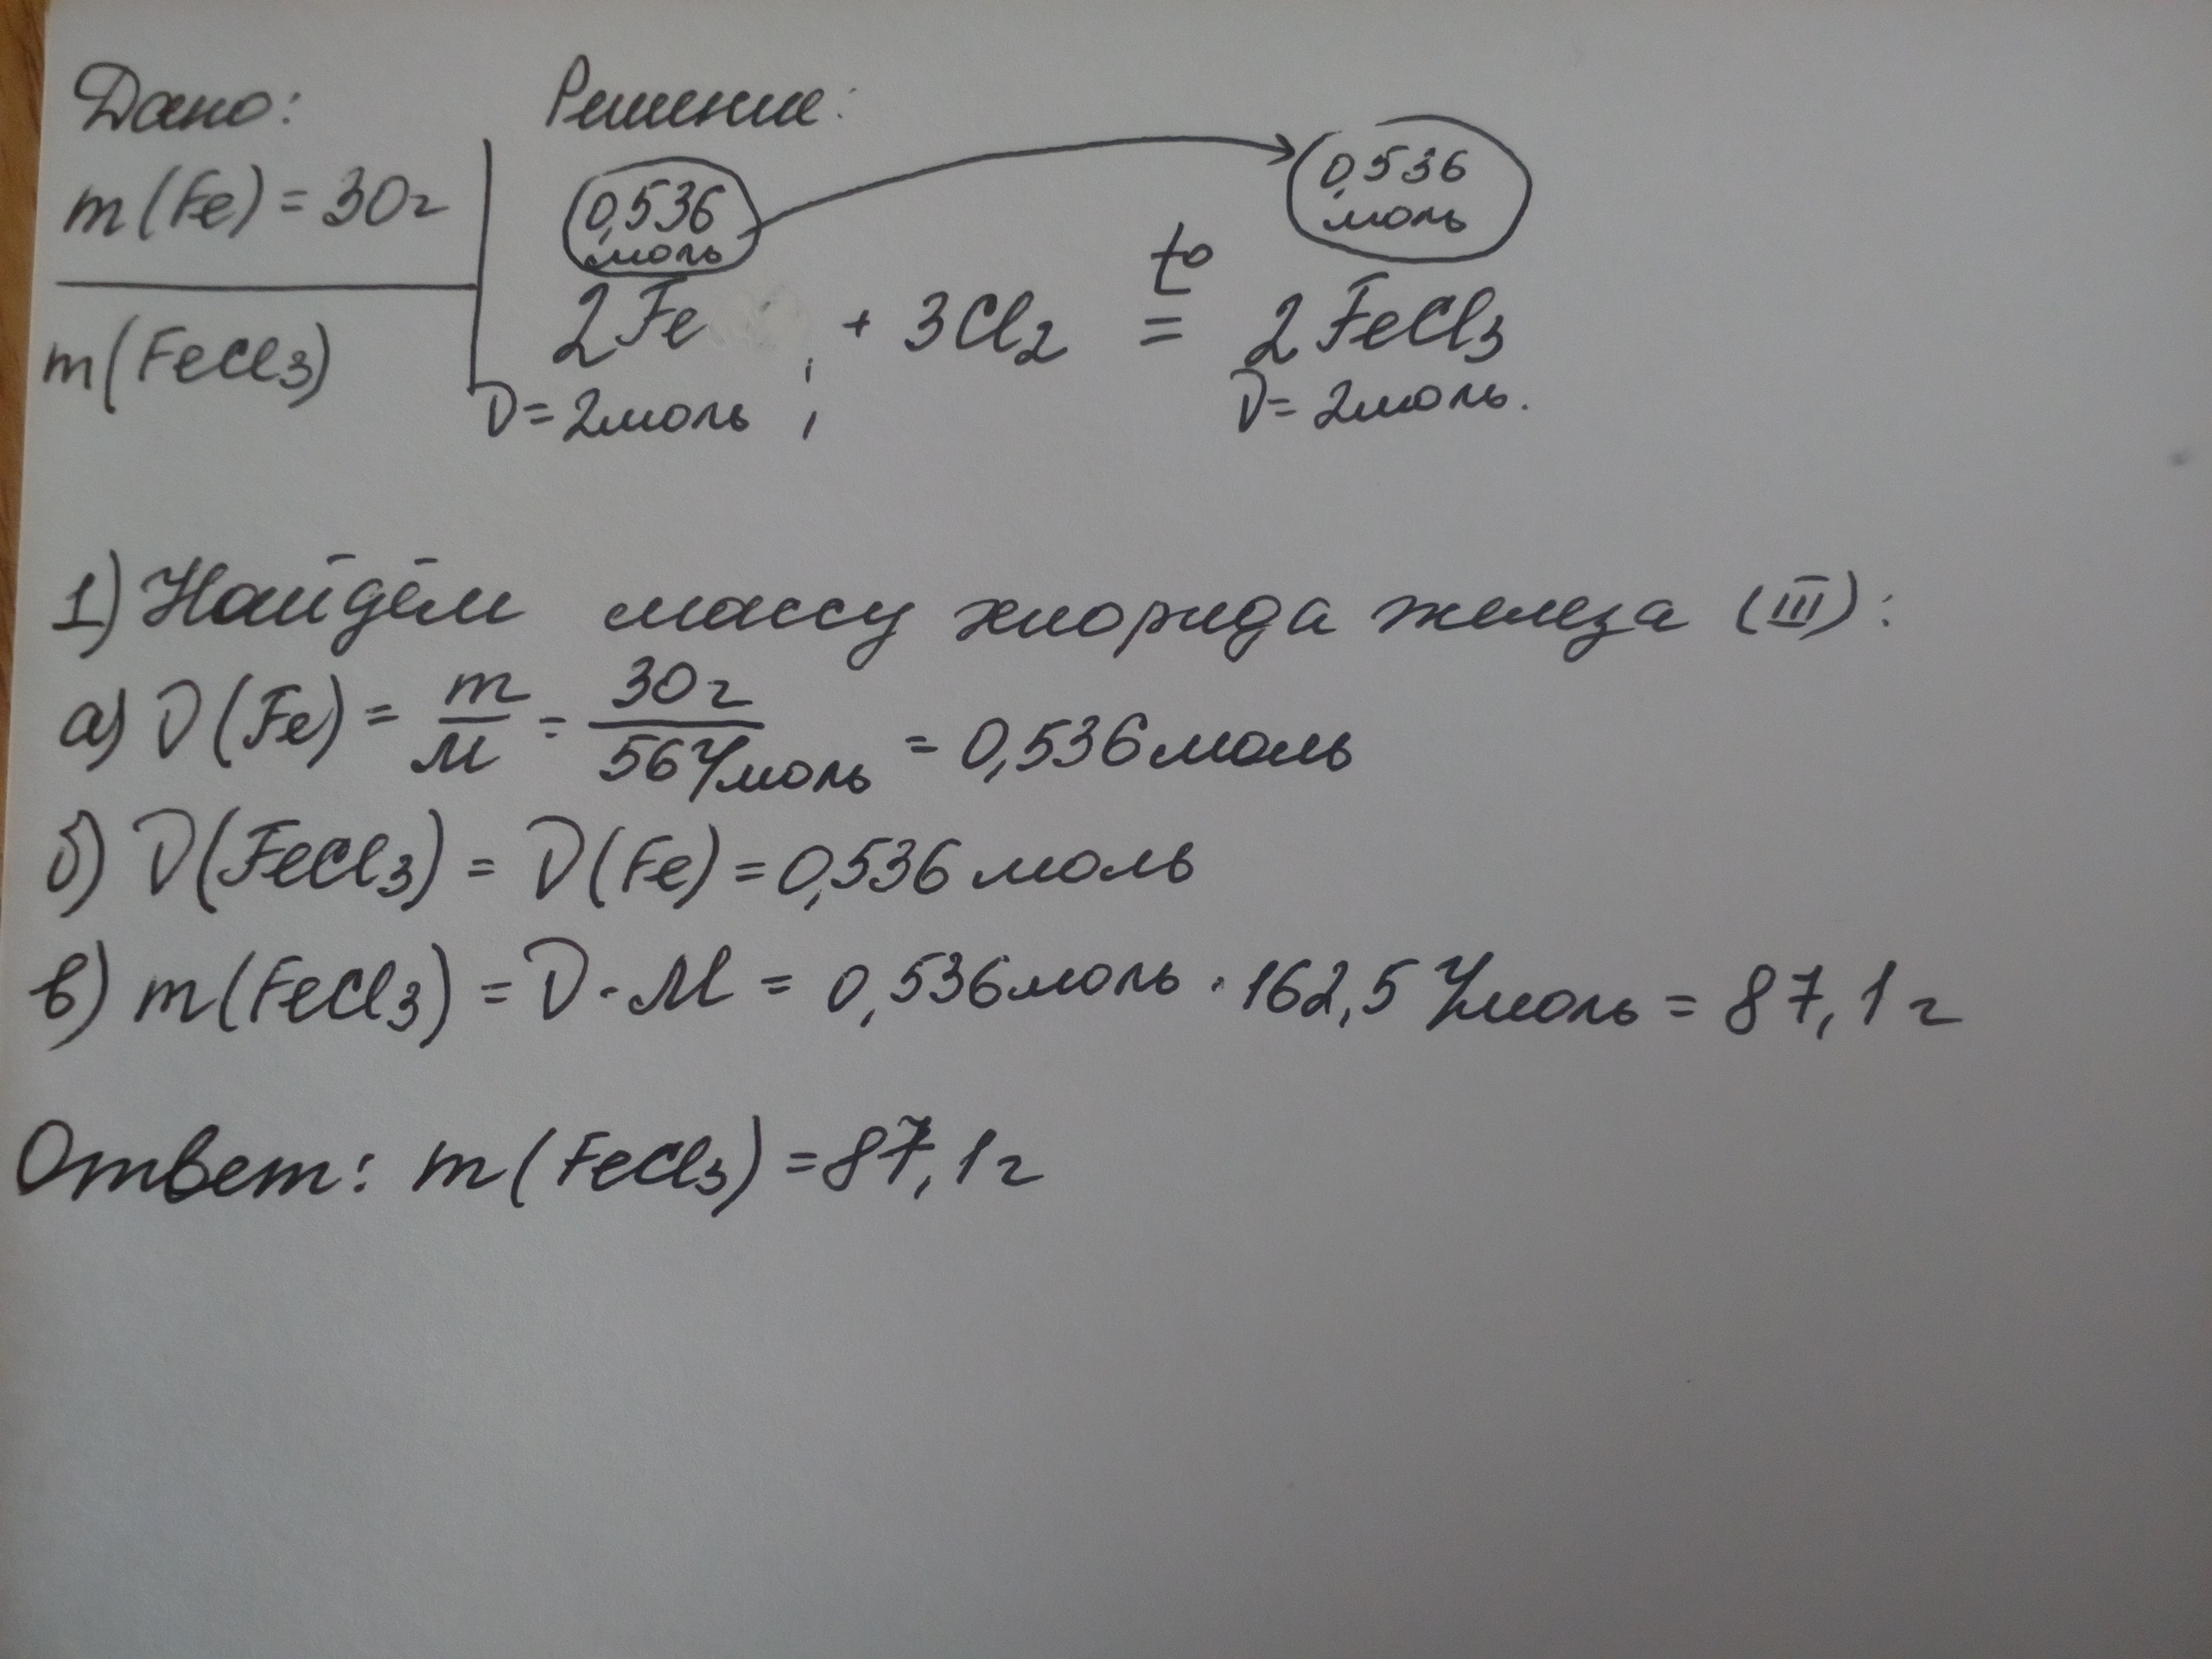 Дано:
m(Fe) = 30г
m(FeCl3)
Решение:
0,536 моль
0,536 моль
2Fe + 3Cl2 t° = 2FeCl3
ν = 2моль ν = 2моль.
1) Найдём массу хлорида железа (III):
а) ν(Fe) = m/M = 30г/56г/моль = 0,536 моль
б) ν(FeCl3) = ν(Fe) = 0,536 моль
в) m(FeCl3) = ν · M = 0,536моль · 162,5 г/моль = 87,1 г
Ответ: m(FeCl3) = 87,1г